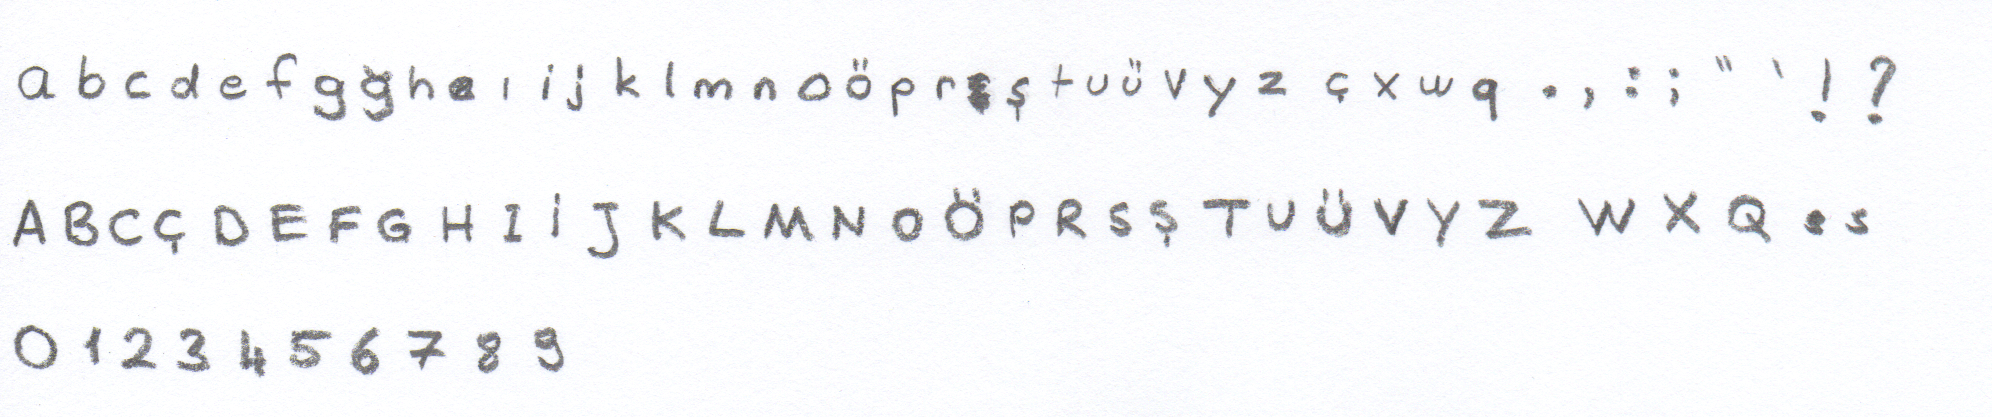 a b c d e f g ğ h ı i j k l m n o ö p r ş t u ü v y z ç x w q . , : ; " ' ! ?
A B C Ç D E F G H I İ J K L M N O Ö P R S Ş T U Ü V Y Z W X Q s
0 1 2 3 4 5 6 7 8 9